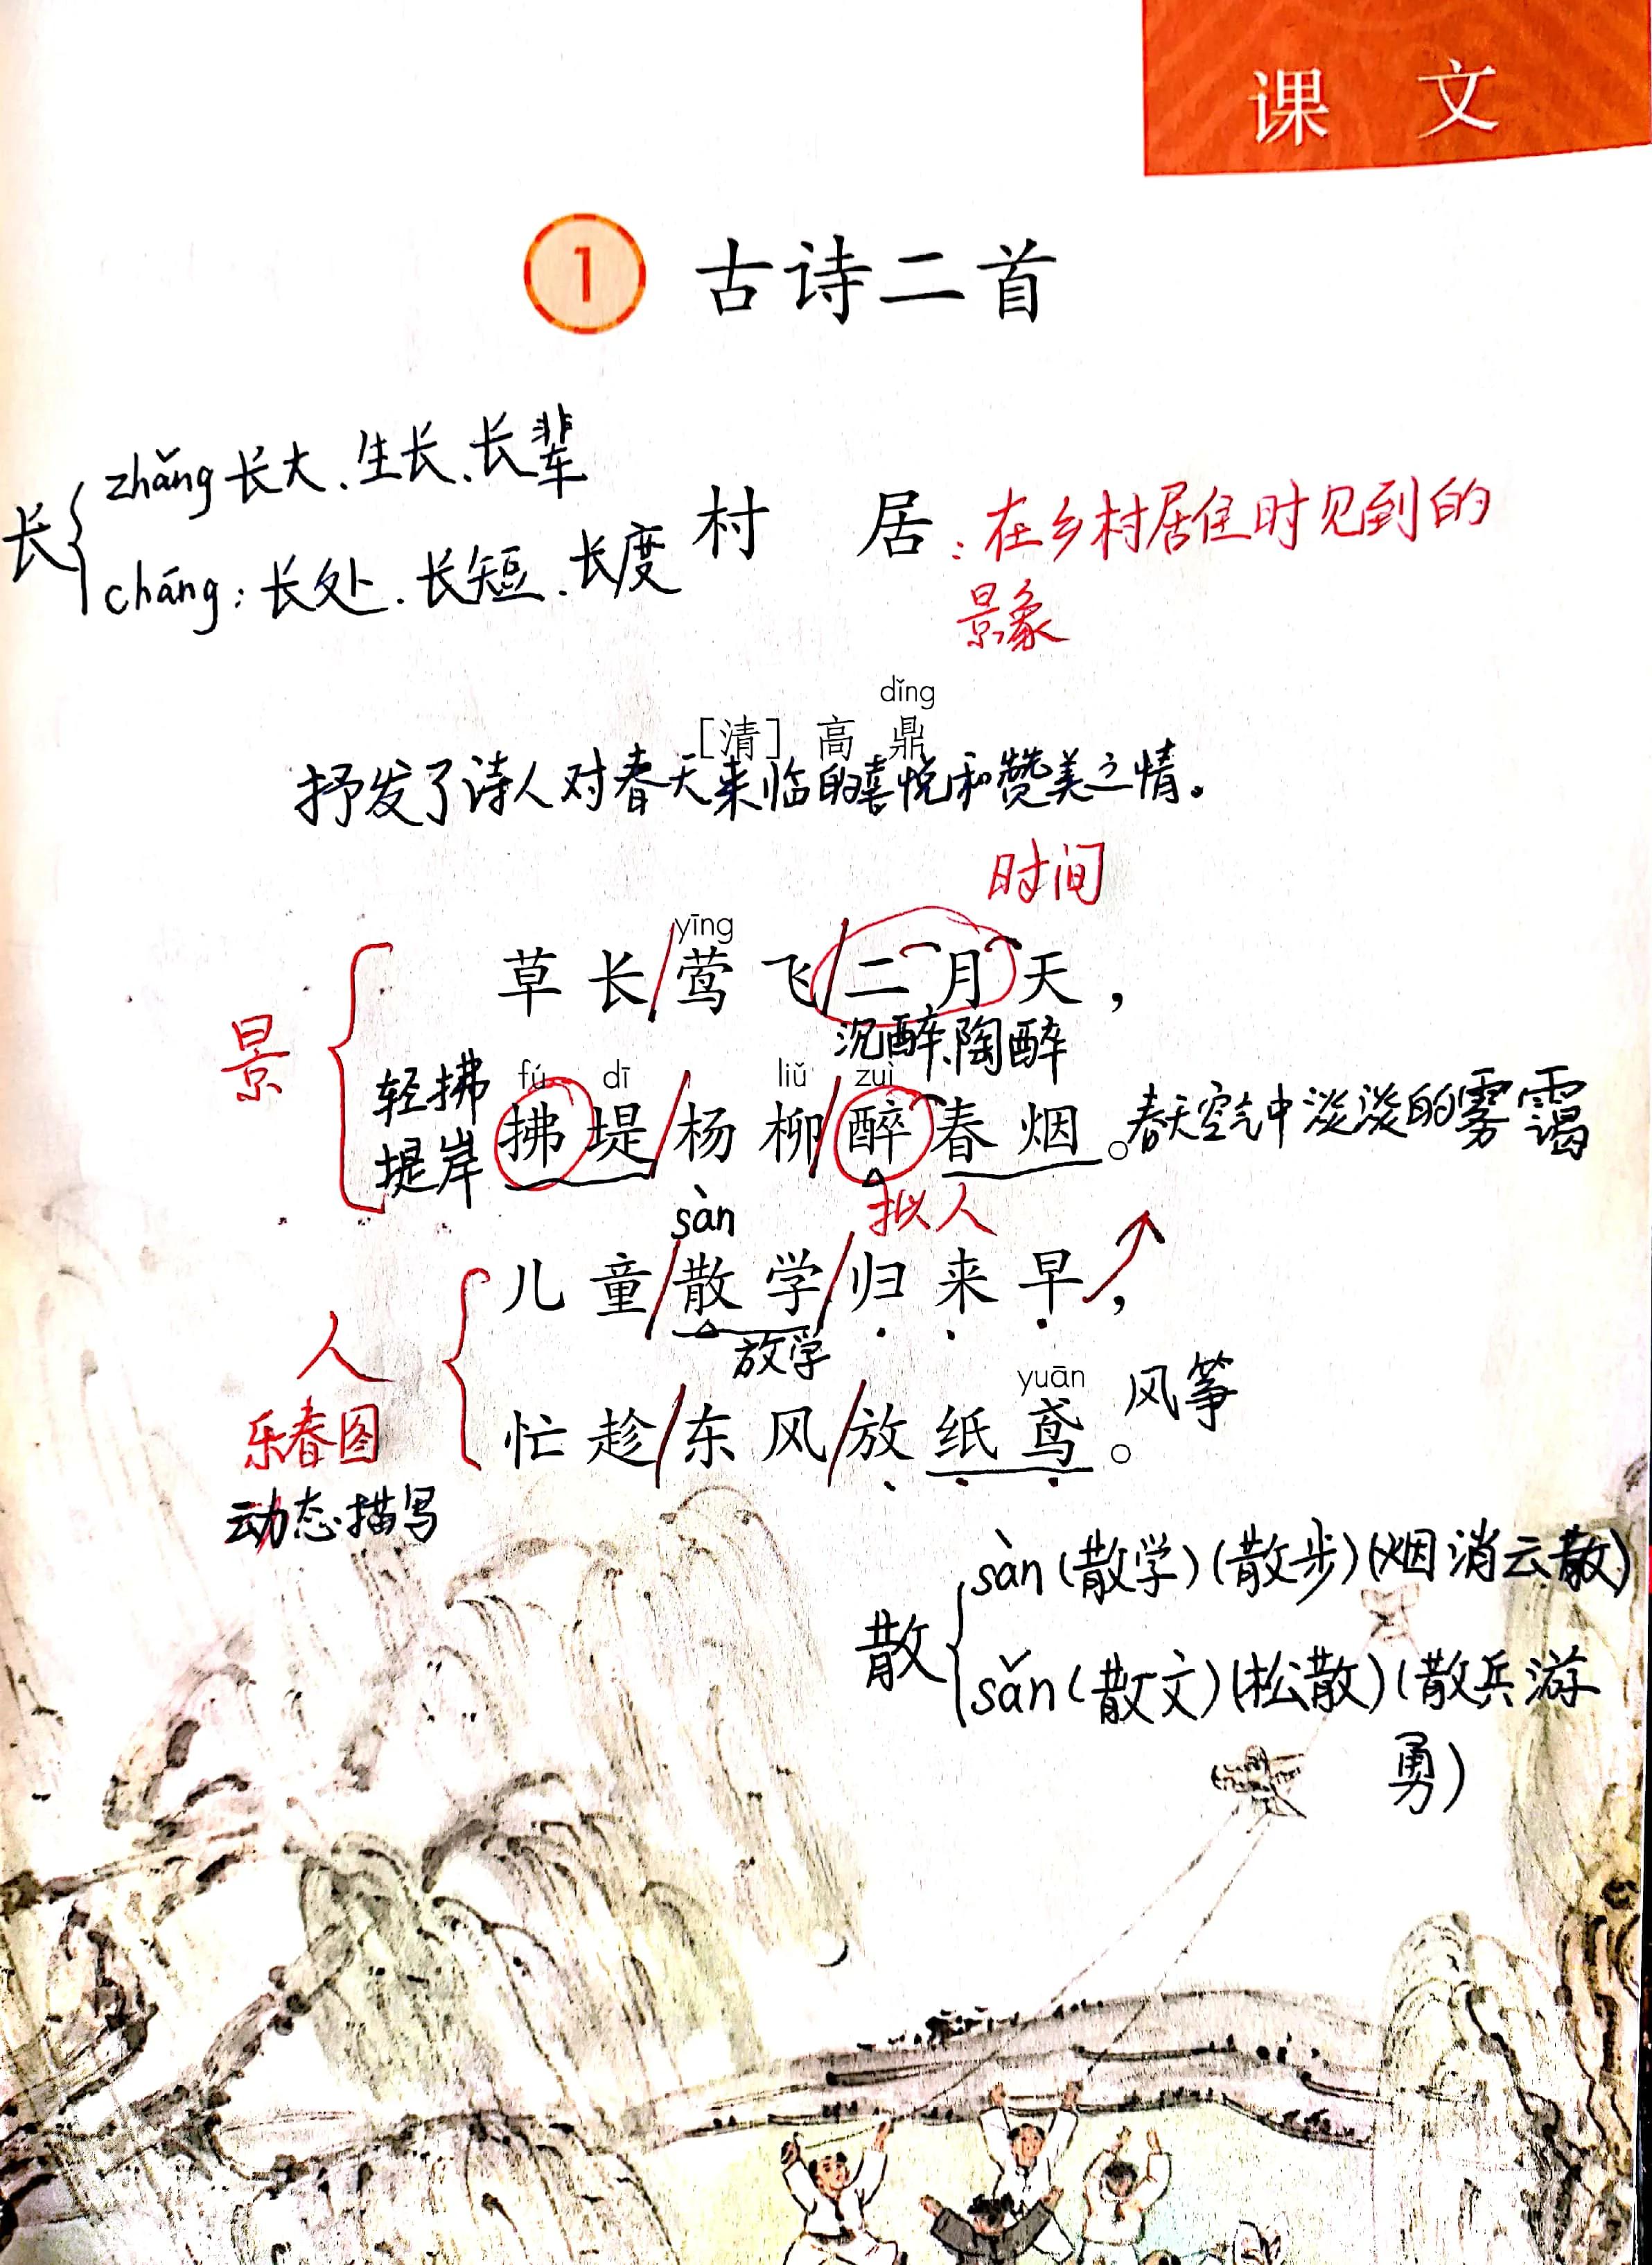 课 文
1 古诗二首
zhǎng 长大、生长、长辈
长
cháng: 长处、长短、长度
村 居 : 在乡村居住时见到的
景象
dǐng
[清] 高 鼎
抒发了诗人对春天来临的喜悦和赞美之情。
时间
yīng
草 长/莺 飞/二 月 天，
景
沉醉、陶醉
轻拂
堤岸
fú dī liǔ zuì
拂 堤/杨 柳/醉 春 烟。春天空气中淡淡的雾霭
拟人
sàn
儿 童/散 学/归 来 早，
放学
人
乐春图
动态描写
yuān
忙 趁/东 风/放 纸 鸢。 风筝
sàn (散学) (散步) (烟消云散)
散
sǎn (散文) (松散) (散兵游
勇)